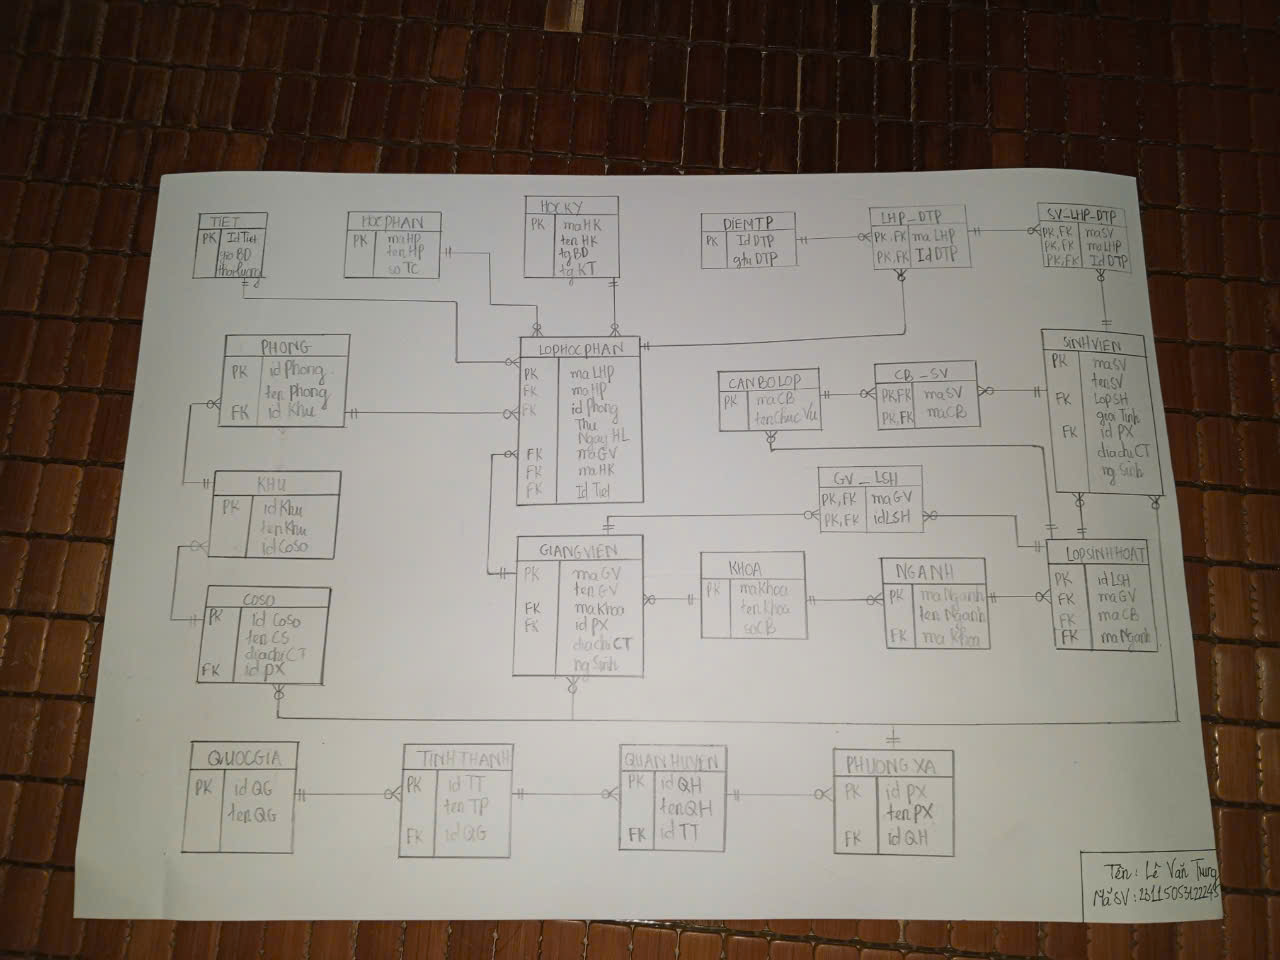 TIET
PK IdTiet
tgBD
thoiluong
HOCPHAN
PK maHP
tenHP
so TC
HOCKY
PK maHK
ten HK
tgBD
tgKT
DIEMTP
PK IdDTP
gtri DTP
LHP_DTP
PK,FK maLHP
PK,FK IdDTP
SV-LHP-DTP
PK,FK maSV
PK,FK maLHP
PK,FK IdDTP
PHONG
PK idPhong
tenPhong
FK id Khu
LOPHOCPHAN
PK maLHP
FK maHP
FK idPhong
Thu
NgayHL
FK maGV
FK maHK
FK IdTiet
CANBOLOP
PK maCB
tenChucVu
CB_SV
PK,FK maSV
PK,FK maCB
SINHVIEN
PK maSV
tenSV
FK LopSH
gioiTinh
FK id PX
diachiCT
ngSinh
KHU
PK idKhu
tenKhu
idCoso
GV_LSH
PK,FK maGV
PK,FK idLSH
COSO
PK id Coso
ten CS
diachiCT
FK id PX
GIANGVIEN
PK maGV
ten GV
FK maKhoa
FK id PX
diachiCT
ngSinh
KHOA
PK maKhoa
tenKhoa
soCB
NGANH
PK maNganh
tenNganh
FK maKhoa
LOPSINHHOAT
PK idLSH
FK maGV
FK maCB
FK maNganh
QUOCGIA
PK id QG
tenQG
TINHTHANH
PK id TT
ten TP
FK id QG
QUANHUYEN
PK id QH
tenQH
FK id TT
PHUONGXA
PK id PX
ten PX
FK id QH
Tên: Lê Văn Trung
Mã SV: